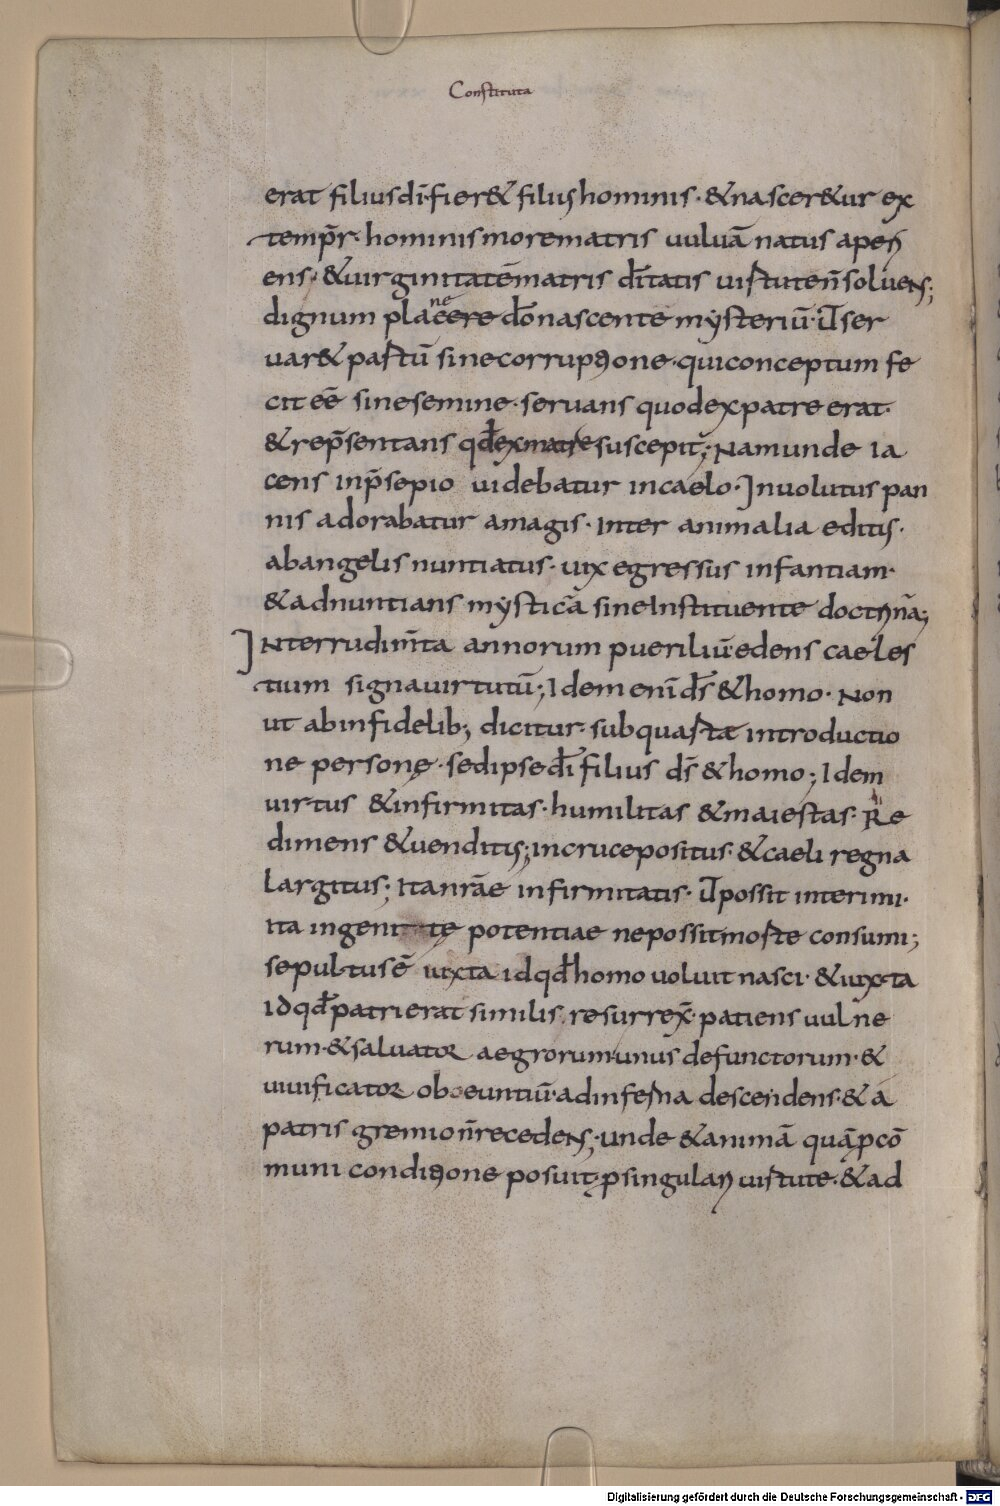 Constituta
erat filius dī· fier& filius hominis· & nascer&ur ex
temp̄r· hominis more matris uuluā natus aperi
ens· & uirginitatē matris dītatis uirtute n̄ soluens;
dignum plane cere dō nascente mysteriū· ut ser
uar& partū sine corruptione· qui conceptum fe
cit eē sine semine· seruans quod ex patre erat·
& rep̄sentans qđ ex matre suscepit; Nam unde ia
cens in p̄sepio uidebatur in caelo· Inuolutus pan
nis adorabatur a magis· Inter animalia editus·
ab angelis nuntiatus· uix egressus infantiam·
& adnuntians mysticā sine Instituente doctrinā;
Inter rudim̄ta annorum puerilium edens caeles
tium signa uirtutū; Idem enī ds̄ & homo· Non
ut ab infidelib; dicitur· sub quartae introductio
ne personę· sed ipse dī filius ds̄ & homo; Idem
uirtus & infirmitas· humilitas & maiestas· Re
dimens & uenditus; in cruce positus· & caeli regna
largitus; Ita nrāe infirmitatis· ut possit interimi·
ita ingenitę potentiae ne possit morte consumi;
sepultus ē iuxta id qđ homo uoluit nasci· & iuxta
id qđ patri erat similis· resurrex̄· patiens uulne
rum· & saluator aegrorum· unus defunctorum· &
uiuificator obeuntiū· ad inferna descendens· & a
patris gremio n̄ recedens; unde & animā quā p cō
muni conditione posuit· p singulari uirtute· & ad
Digitalisierung gefördert durch die Deutsche Forschungsgemeinschaft - DFG